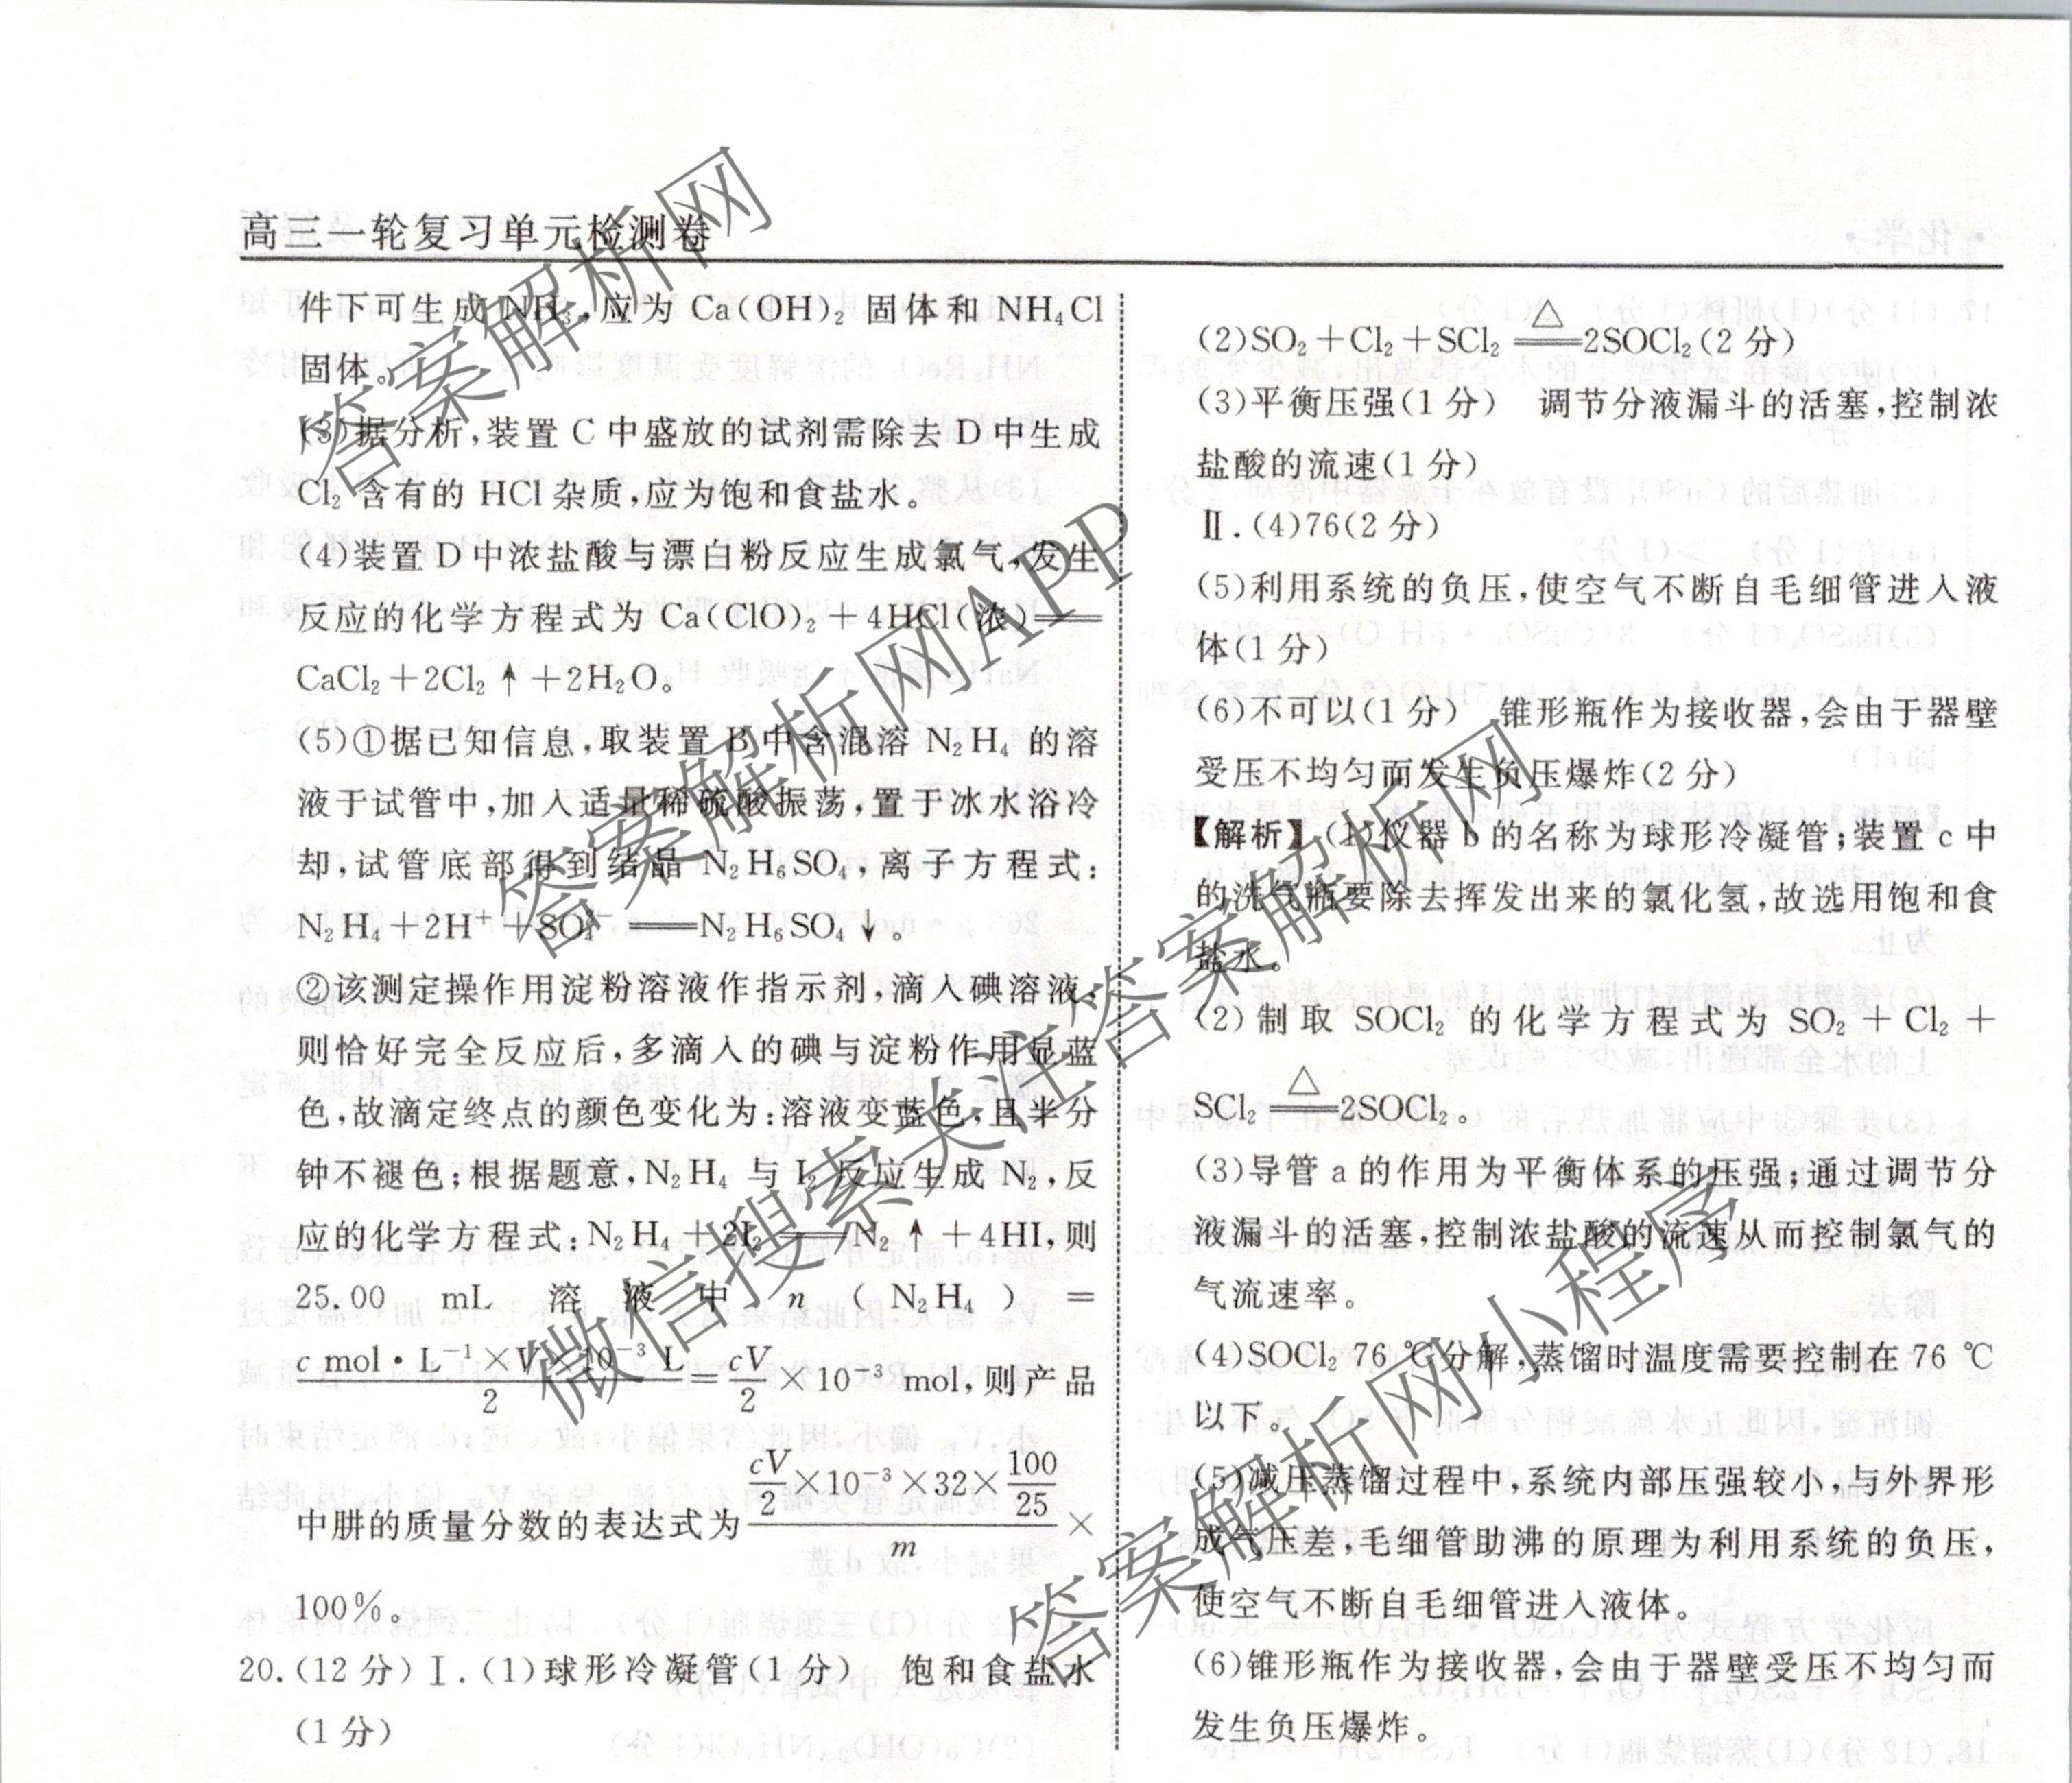 高三一轮复习单元检测卷
件下可生成 NH₃,应为 Ca(OH)₂ 固体和 NH₄Cl
固体。
(3)据分析,装置 C 中盛放的试剂需除去 D 中生成
Cl₂ 含有的 HCl 杂质,应为饱和食盐水。
(4)装置 D 中浓盐酸与漂白粉反应生成氯气,发生
反应的化学方程式为 Ca(ClO)₂+4HCl(浓)══
CaCl₂+2Cl₂↑+2H₂O。
(5)①据已知信息,取装置 B 中含混溶 N₂H₄ 的溶
液于试管中,加入适量稀硫酸振荡,置于冰水浴冷
却,试管底部得到结晶 N₂H₆SO₄,离子方程式:
N₂H₄+2H⁺+SO₄²⁻══N₂H₆SO₄↓。
②该测定操作用淀粉溶液作指示剂,滴入碘溶液,
则恰好完全反应后,多滴入的碘与淀粉作用显蓝
色,故滴定终点的颜色变化为:溶液变蓝色,且半分
钟不褪色;根据题意,N₂H₄ 与 I₂ 反应生成 N₂,反
应的化学方程式:N₂H₄+2I₂══N₂↑+4HI,则
25.00 mL 溶液中 n(N₂H₄)=
(c mol·L⁻¹×V×10⁻³ L)/2=cV/2×10⁻³ mol,则产品
中肼的质量分数的表达式为(cV/2×10⁻³×32×100/25)/m×
100%。
20.(12 分)Ⅰ.(1)球形冷凝管(1 分) 饱和食盐水
(1 分)
(2)SO₂+Cl₂+SCl₂══(△)2SOCl₂(2 分)
(3)平衡压强(1 分) 调节分液漏斗的活塞,控制浓
盐酸的流速(1 分)
Ⅱ.(4)76(2 分)
(5)利用系统的负压,使空气不断自毛细管进入液
体(1 分)
(6)不可以(1 分) 锥形瓶作为接收器,会由于器壁
受压不均匀而发生负压爆炸(2 分)
【解析】(1)仪器 b 的名称为球形冷凝管;装置 c 中
的洗气瓶要除去挥发出来的氯化氢,故选用饱和食
盐水。
(2)制取 SOCl₂ 的化学方程式为 SO₂+Cl₂+
SCl₂══(△)2SOCl₂。
(3)导管 a 的作用为平衡体系的压强;通过调节分
液漏斗的活塞,控制浓盐酸的流速从而控制氯气的
气流速率。
(4)SOCl₂ 76 ℃分解,蒸馏时温度需要控制在 76 ℃
以下。
(5)减压蒸馏过程中,系统内部压强较小,与外界形
成气压差,毛细管助沸的原理为利用系统的负压,
使空气不断自毛细管进入液体。
(6)锥形瓶作为接收器,会由于器壁受压不均匀而
发生负压爆炸。
答案解析网
答案解析网APP
微信搜索关注答案解析网
答案解析网小程序